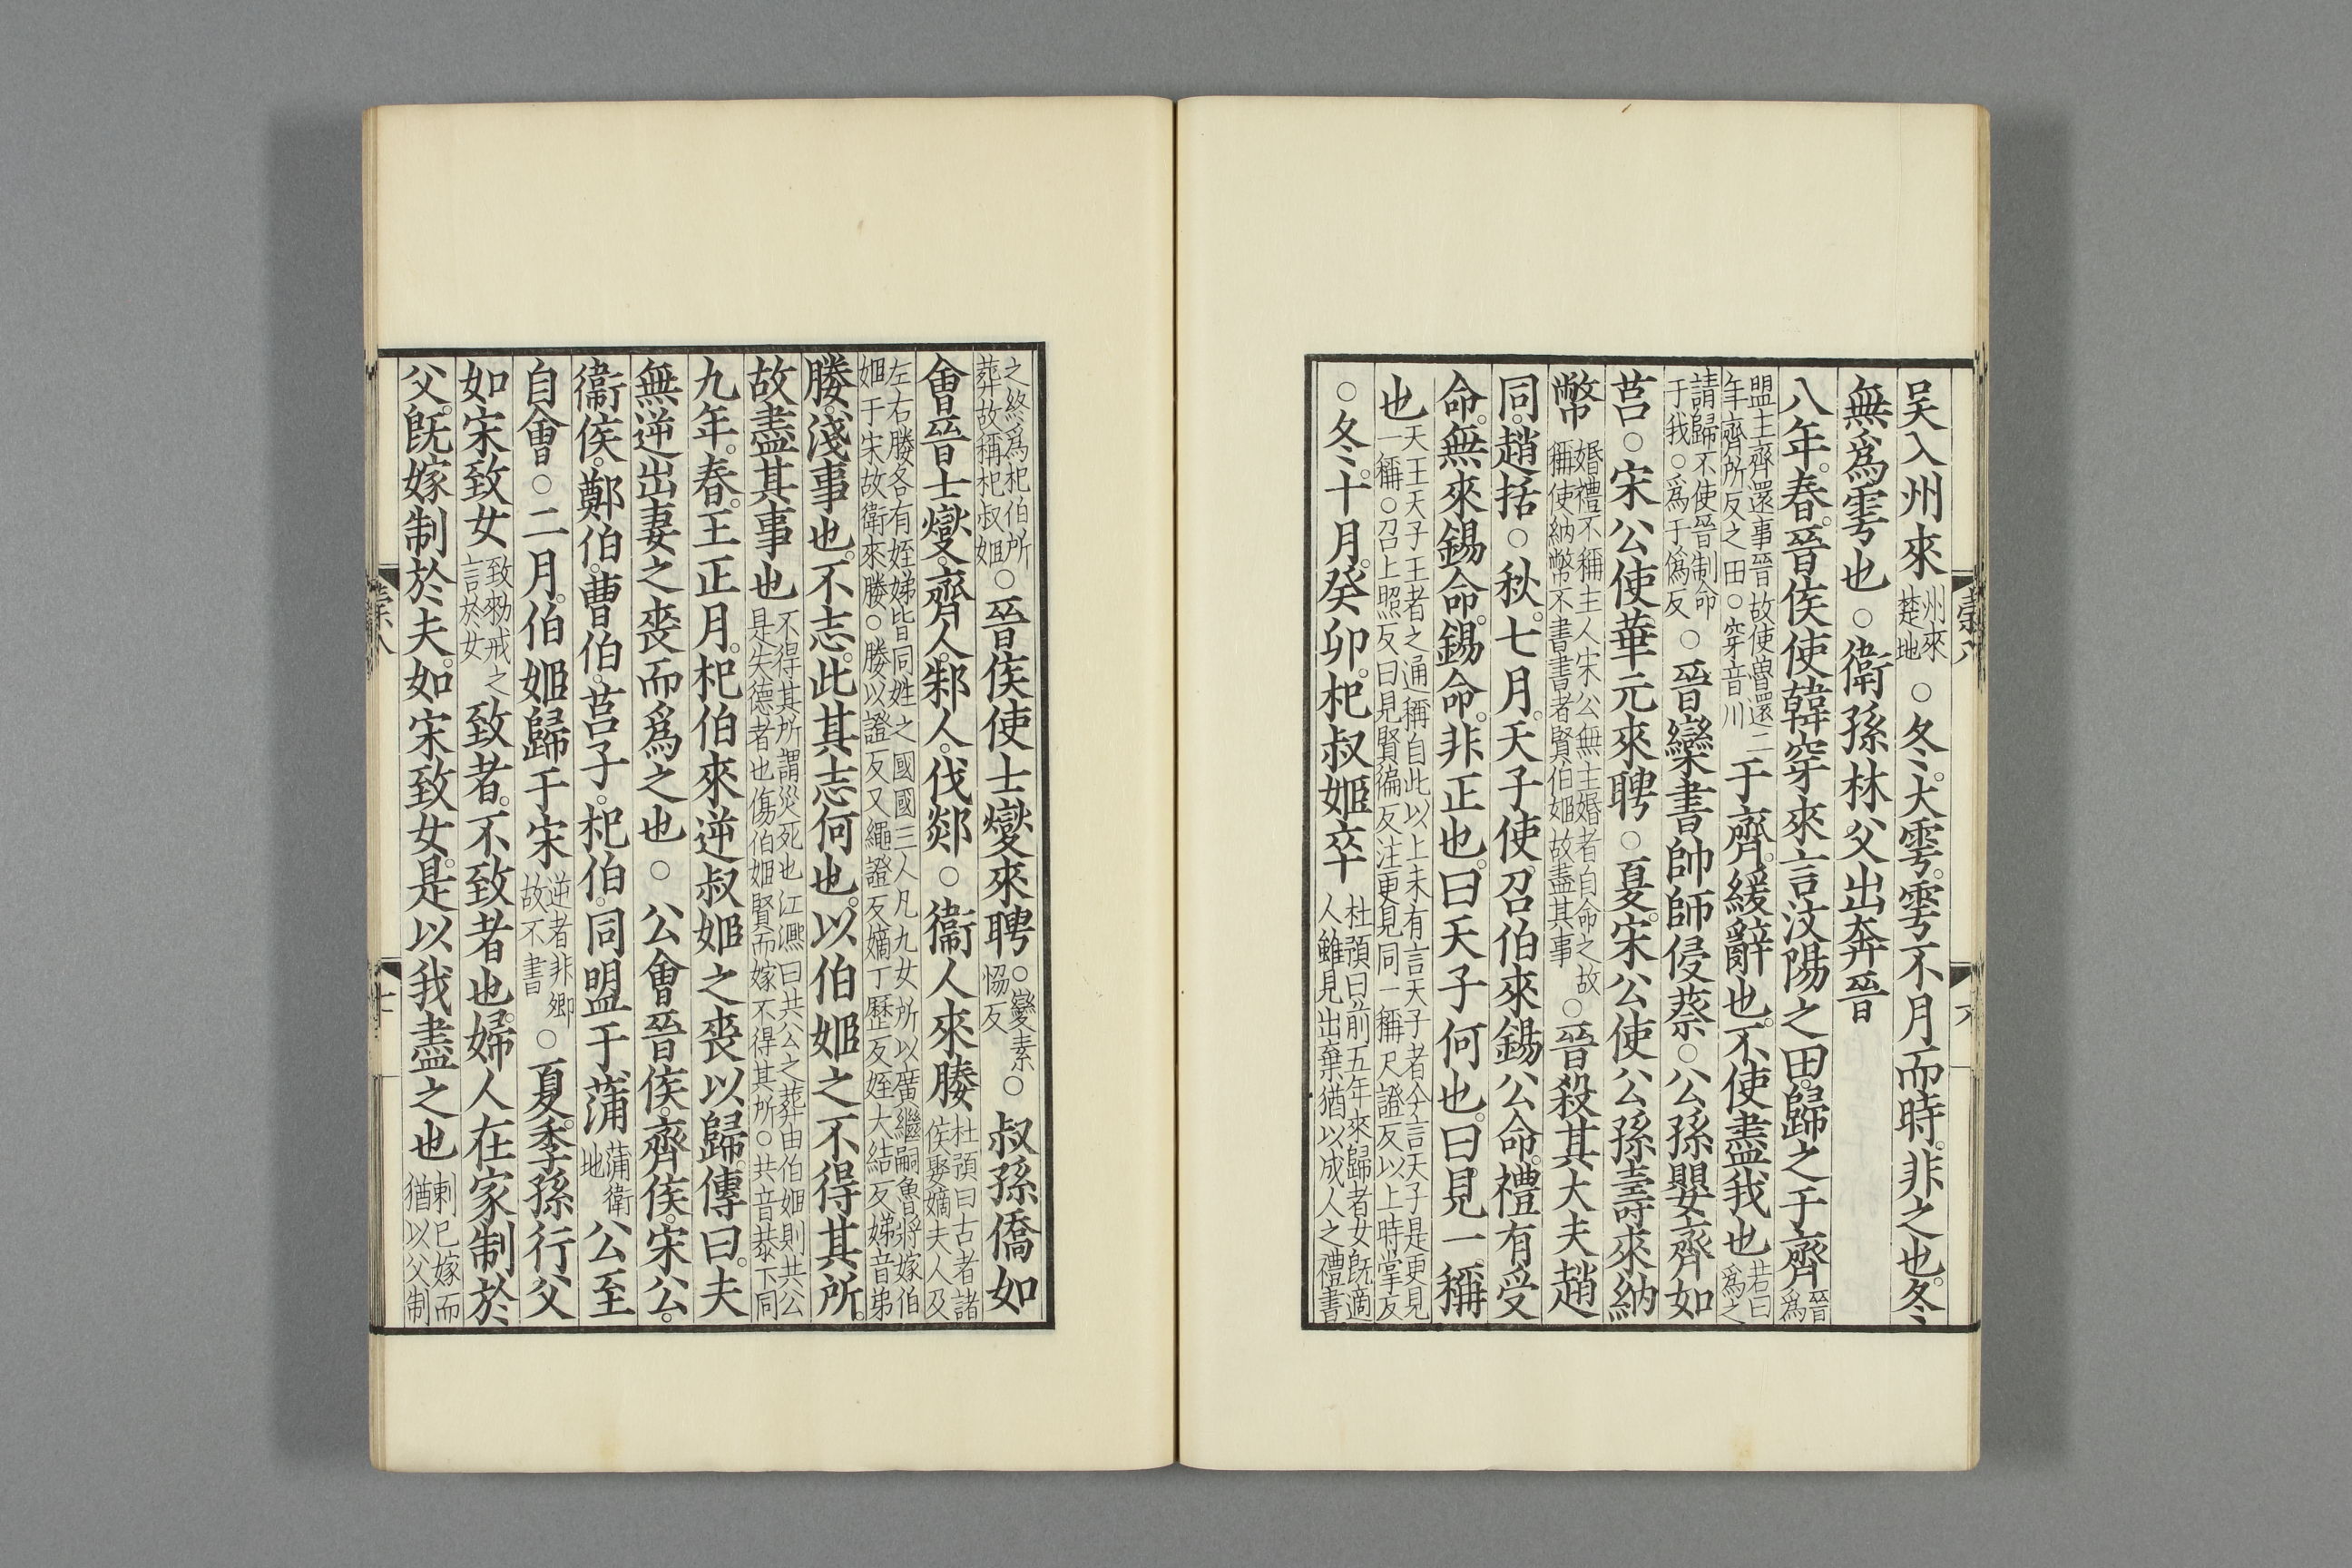 吴入州來州來楚地○冬。大雩。雩不月而時。非之也。冬
無爲雩也○衛孫林父出奔晉
八年。春。晉侯使韓穿來言汶陽之田。歸之于齊晉爲
盟主齊還事晉故使魯還二年齊所反之田○穿音川于齊。緩辭也。不使盡我也若曰爲之
請歸不使晉制命于我○爲于僞反○晉欒書帥師侵蔡○公孫嬰齊如
莒○宋公使華元來聘○夏。宋公使公孫壽來納
幣婚禮不稱主人宋公無主婚者自命之故稱使納幣不書書者賢伯姬故盡其事○晉殺其大夫趙
同。趙括○秋。七月。天子使。召伯來錫公命。禮有受
命。無來錫命。錫命。非正也。曰天子何也。曰。見一稱
也天王天子王者之通稱自此以上未有言天子者今言天子是更見一稱○召上照反曰見賢徧反注更見同一稱尺證反以上時掌反
○冬。十月。癸卯。杞叔姬卒杜預曰前五年來歸者女旣適人雖見出棄猶以成人之禮書
之終爲杞伯所葬故稱杞叔姬○晉侯使士燮來聘○燮素恊反○叔孫僑如
會晉士燮。齊人。邾人。伐郯○衞人來媵杜預曰古者諸侯娶嫡夫人及
左右媵各有姪娣皆同姓之國國三人凡九女所以廣繼嗣魯將嫁伯姬于宋故衛來媵○媵以證反又繩證反嫡丁歷反姪大結反娣音弟
媵。淺事也。不志。此其志何也。以伯姬之不得其所。
故盡其事也不得其所謂災死也江熙曰共公之葬由伯姬則共公是失德者也傷伯姬賢而嫁不得其所○共音恭下同
九年。春。王正月。杞伯來逆叔姬之喪以歸。傳曰。夫
無逆出妻之喪而爲之也○公會晉侯。齊侯。宋公。
衞侯。鄭伯。曹伯。莒子。杞伯。同盟于蒲蒲衛地公至
自會○二月。伯姬歸于宋逆者非卿故不書○夏。季孫行父
如宋致女致勑戒之言於女致者。不致者也。婦人在家制於
父。旣嫁制於夫。如宋致女。是以我盡之也剌已嫁而猶以父制